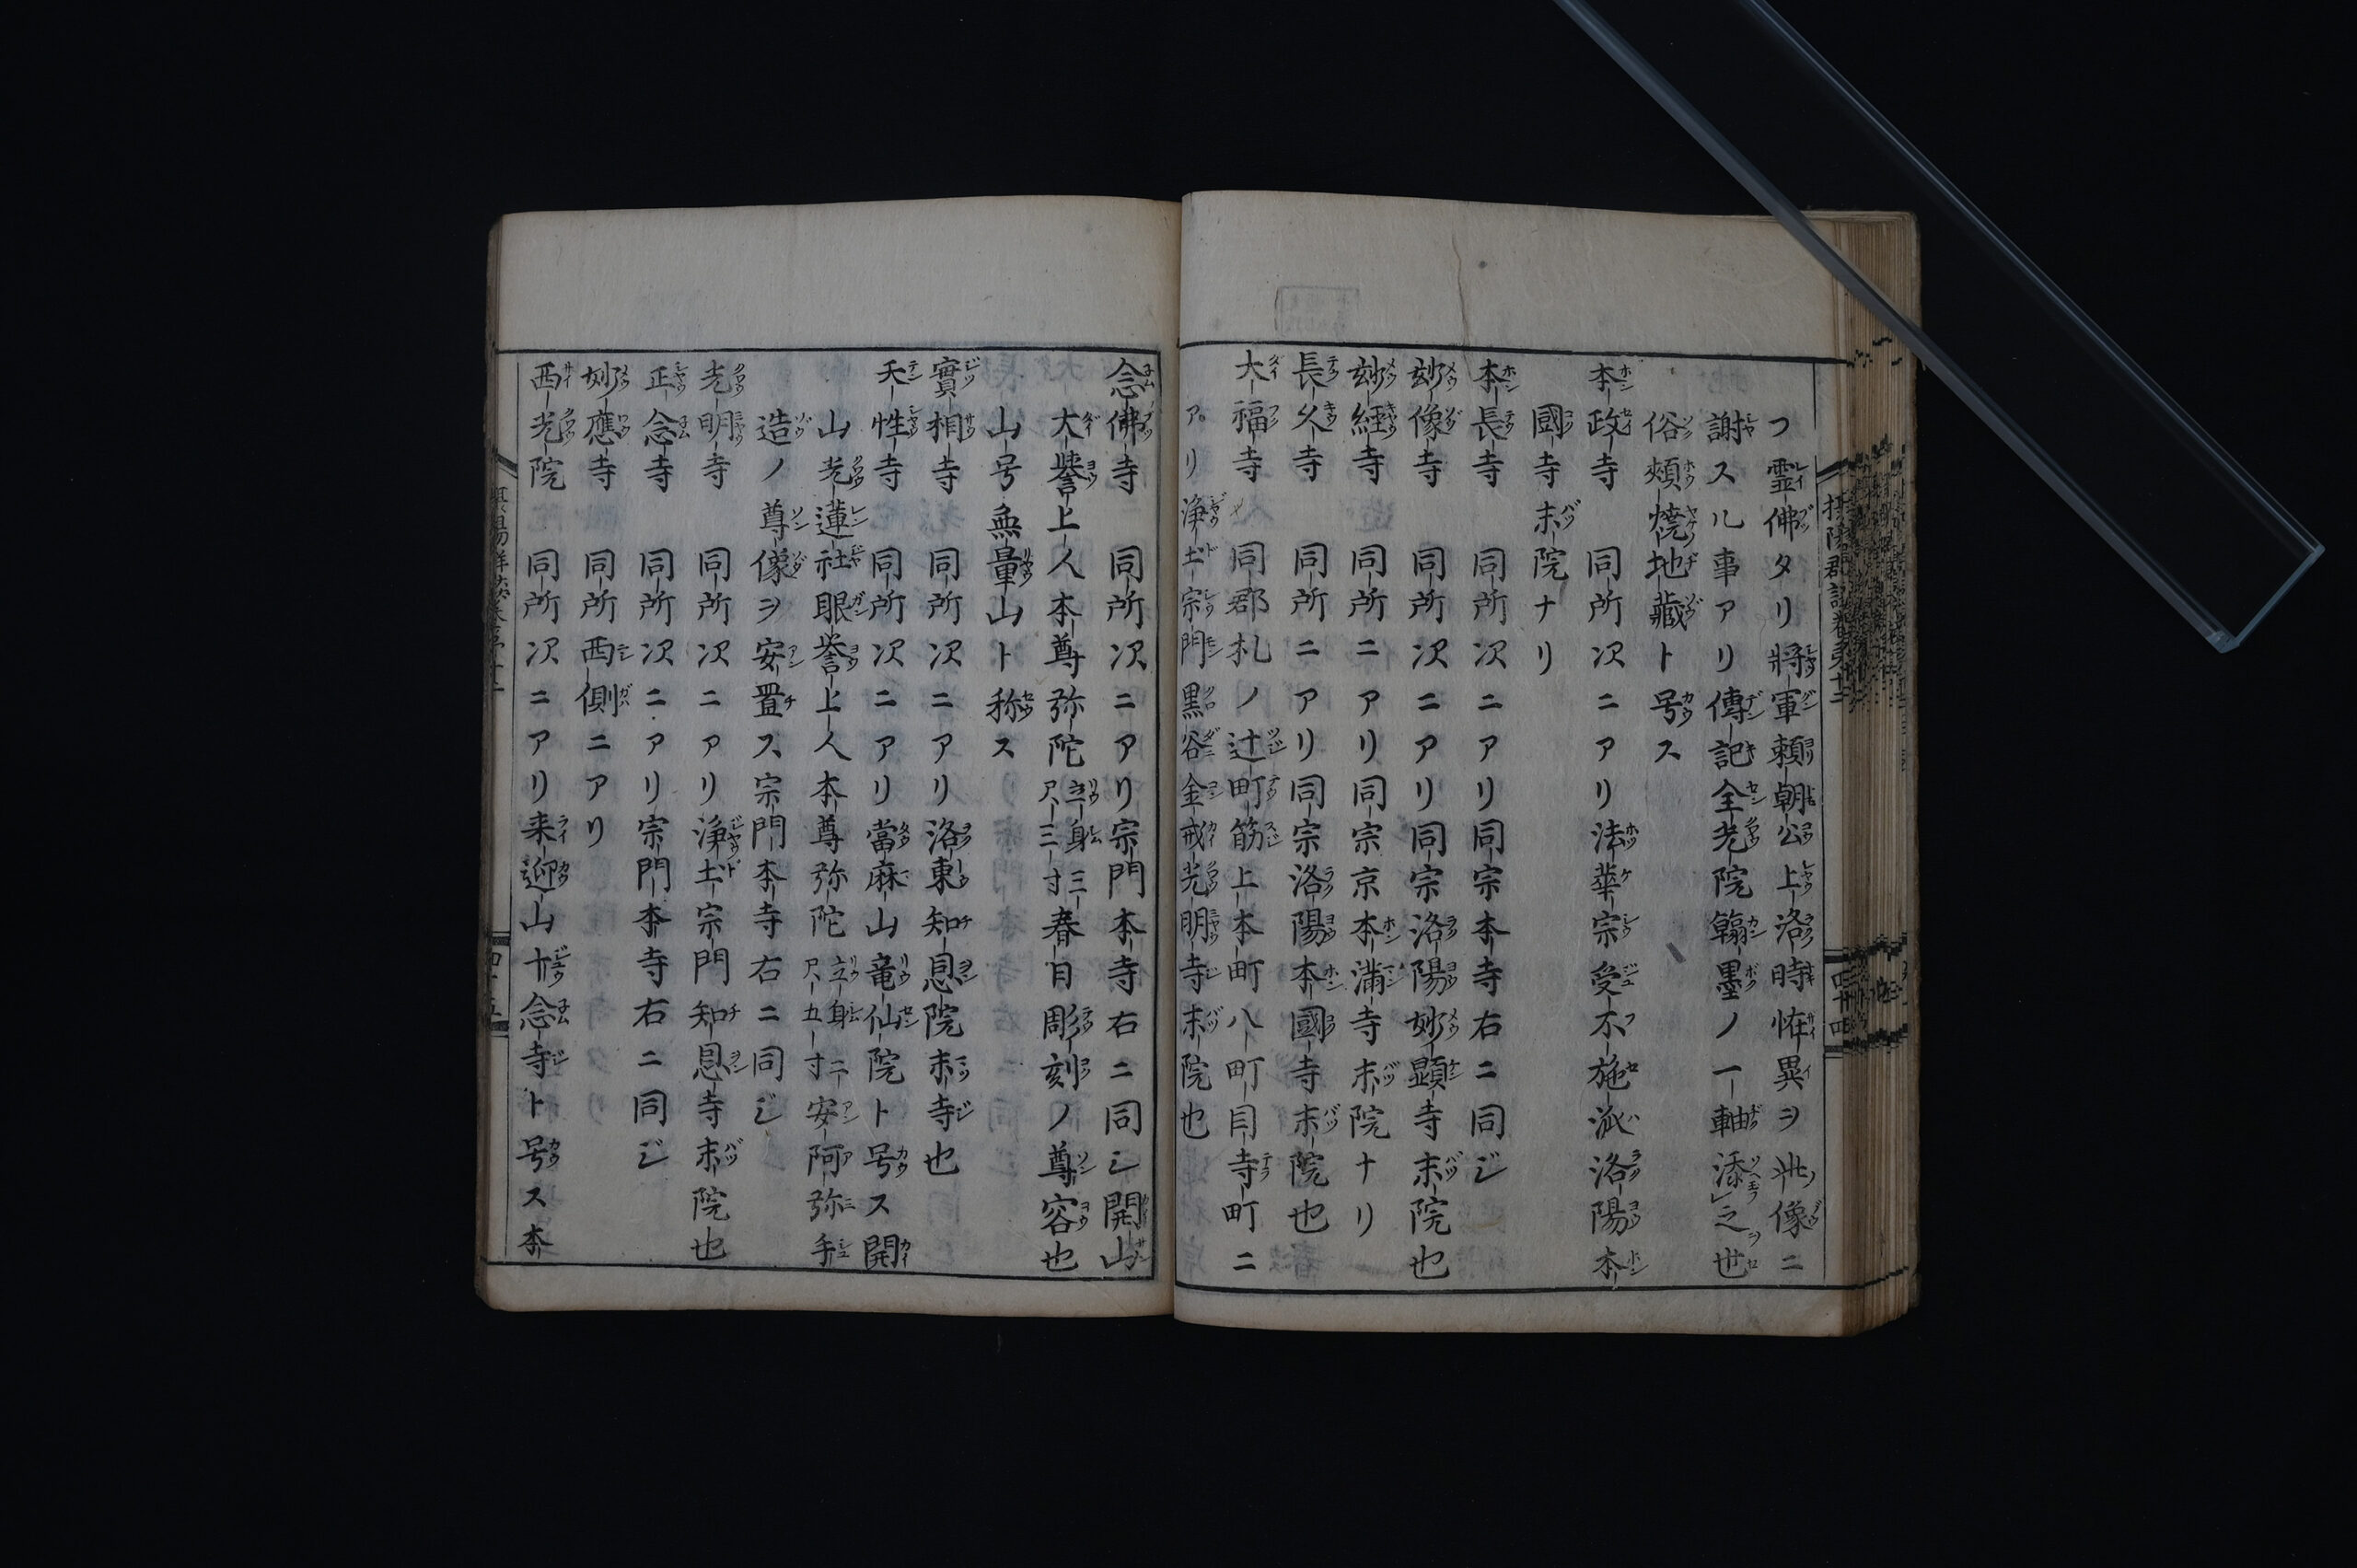 ツ霊佛タリ将軍頼朝公上洛時恠異ヲ此像ニ
謝スル事アリ傳記全光院翰墨ノ一軸添之世
俗頬焼地藏ト号ス
本政寺 同所次ニアリ法華宗受不施派洛陽本
國寺末院ナリ
本長寺 同所次ニアリ同宗本寺右ニ同ジ
妙像寺 同所次ニアリ同宗洛陽妙顕寺末院也
妙經寺 同所ニアリ同宗京本満寺末院ナリ
長久寺 同所ニアリ同宗洛陽本國寺末院也
大福寺 同郡札ノ辻町筋上本町八町目寺町ニ
アリ浄土宗門黒谷金戒光明寺末院也
念佛寺 同所次ニアリ宗門本寺右ニ同シ開山
大誉上人本尊弥陀立身三尺三寸春日彫刻ノ尊容也
山号無量山ト称ス
實相寺 同所次ニアリ洛東知恩院末寺也
天性寺 同所次ニアリ當麻山竜仙院ト号ス開
山光蓮社眼誉上人本尊弥陀立身二尺五寸安阿弥手
造ノ尊像ヲ安置ス宗門本寺右ニ同ジ
光明寺 同所次ニアリ浄土宗門知恩寺末院也
正念寺 同所次ニアリ宗門本寺右ニ同ジ
妙應寺 同所西側ニアリ
西光院 同所次ニアリ来迎山十念寺ト号ス本